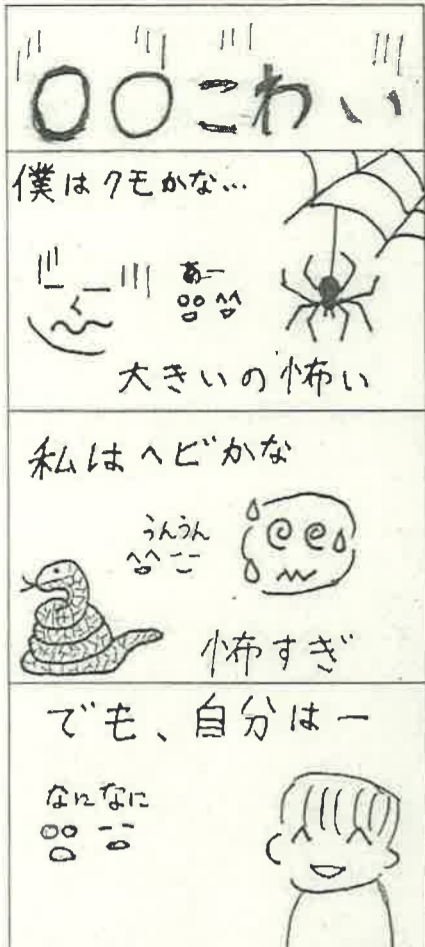 〇〇こわい
僕はクモかな…
あー
大きいの怖い
私はヘビかな
うんうん
怖すぎ
でも、自分はー
なになに